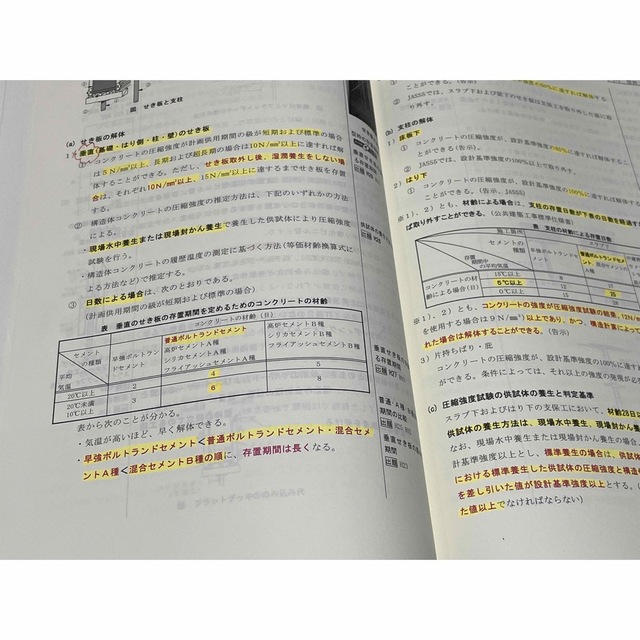 図 せき板と支柱
(a) せき板の解体
1) 垂直(基礎・はり側・柱・壁)のせき板
① コンクリートの圧縮強度が計画供用期間の級が短期および標準の場合
は5N/mm²以上、長期および超長期の場合は10N/mm²以上に達すれば解
体することができる。ただし、せき板取外し後、湿潤養生をしない場
合は、それぞれ10N/mm²以上、15N/mm²に達するまでせき板を存置
する。
② 構造体コンクリートの圧縮強度の推定方法は、下記のいずれかの方法
による。
・現場水中養生または現場封かん養生で養生した供試体により圧縮強度
試験を行う。
・構造体コンクリートの履歴温度の測定に基づく方法(等価材齢換算式に
よる方法など)で推定する。
③ 日数による場合は、次のとおりである。
(計画供用期間の級が短期および標準の場合)
表 垂直のせき板の存置期間を定めるためのコンクリートの材齢
コンクリートの材齢(日)
セメントの種類
平均気温
早強ポルトランドセメント
普通ポルトランドセメント
高炉セメントA種
シリカセメントA種
フライアッシュセメントA種
高炉セメントB種
シリカセメントB種
フライアッシュセメントB種
20℃以上 2 4 5
20℃未満10℃以上 3 6 8
表から次のことが分かる。
・気温が高いほど、早く解体できる。
・早強ポルトランドセメント<普通ポルトランドセメント・混合セメ
ントA種<混合セメントB種の順に、存置期間は長くなる。
供試体の養生
垂直のせき板
る存置期間
出題 H27
期間の比較
期間
出題 H23
ことができる。(告示)
② JASS5では、スラブ下
り外す。
(b) 支柱の解体
1) 床板下
① コンクリートの圧縮強度が、設計基準強度の
下ができる。(告示)
② JASS5では、設計基準強度の100%以上で取り外す。
2) はり下
コンクリートの圧縮強度が、設計基準強度の100%に達すれば
ができる。(告示、JASS5)
※1)、2)とも、材齢による場合は、支柱の存置日数が下表の日数を経過す
ば取り外すことができる。(公共建築工事標準仕様書)
表 支柱の材齢による存置日数
施工箇所
セメントの種類
存置期間中の平均気温
普通ポルトランドセメント
コンクリートの材齢による場合(日)
15℃以上 8
5℃以上 12 25
0℃以上 15
※1)、2)とも、コンクリートの強度が圧縮強度試験の結果、12N/
を使用する場合は9N/mm²)以上であり、かつ、構造計算によ
れた場合は解体することができる。(告示)
3) 片持ちばり・庇
コンクリートの圧縮強度が、設計基準強度の100%に達す
ができる。条件によっては、それ以上の強度の発現が
(c) 圧縮強度試験の供試体の養生と判定基準
スラブ下およびはり下の支保工において、材齢28日
供試体の養生方法は、現場水中養生、現場封かん
なお、現場水中養生または現場封かん養生の場合
計基準強度以上とし、標準養生の場合は、供試
における標準養生した供試体の圧縮強度と構造
を差し引いた値が設計基準強度以上とする。
た値以上でなければならない)